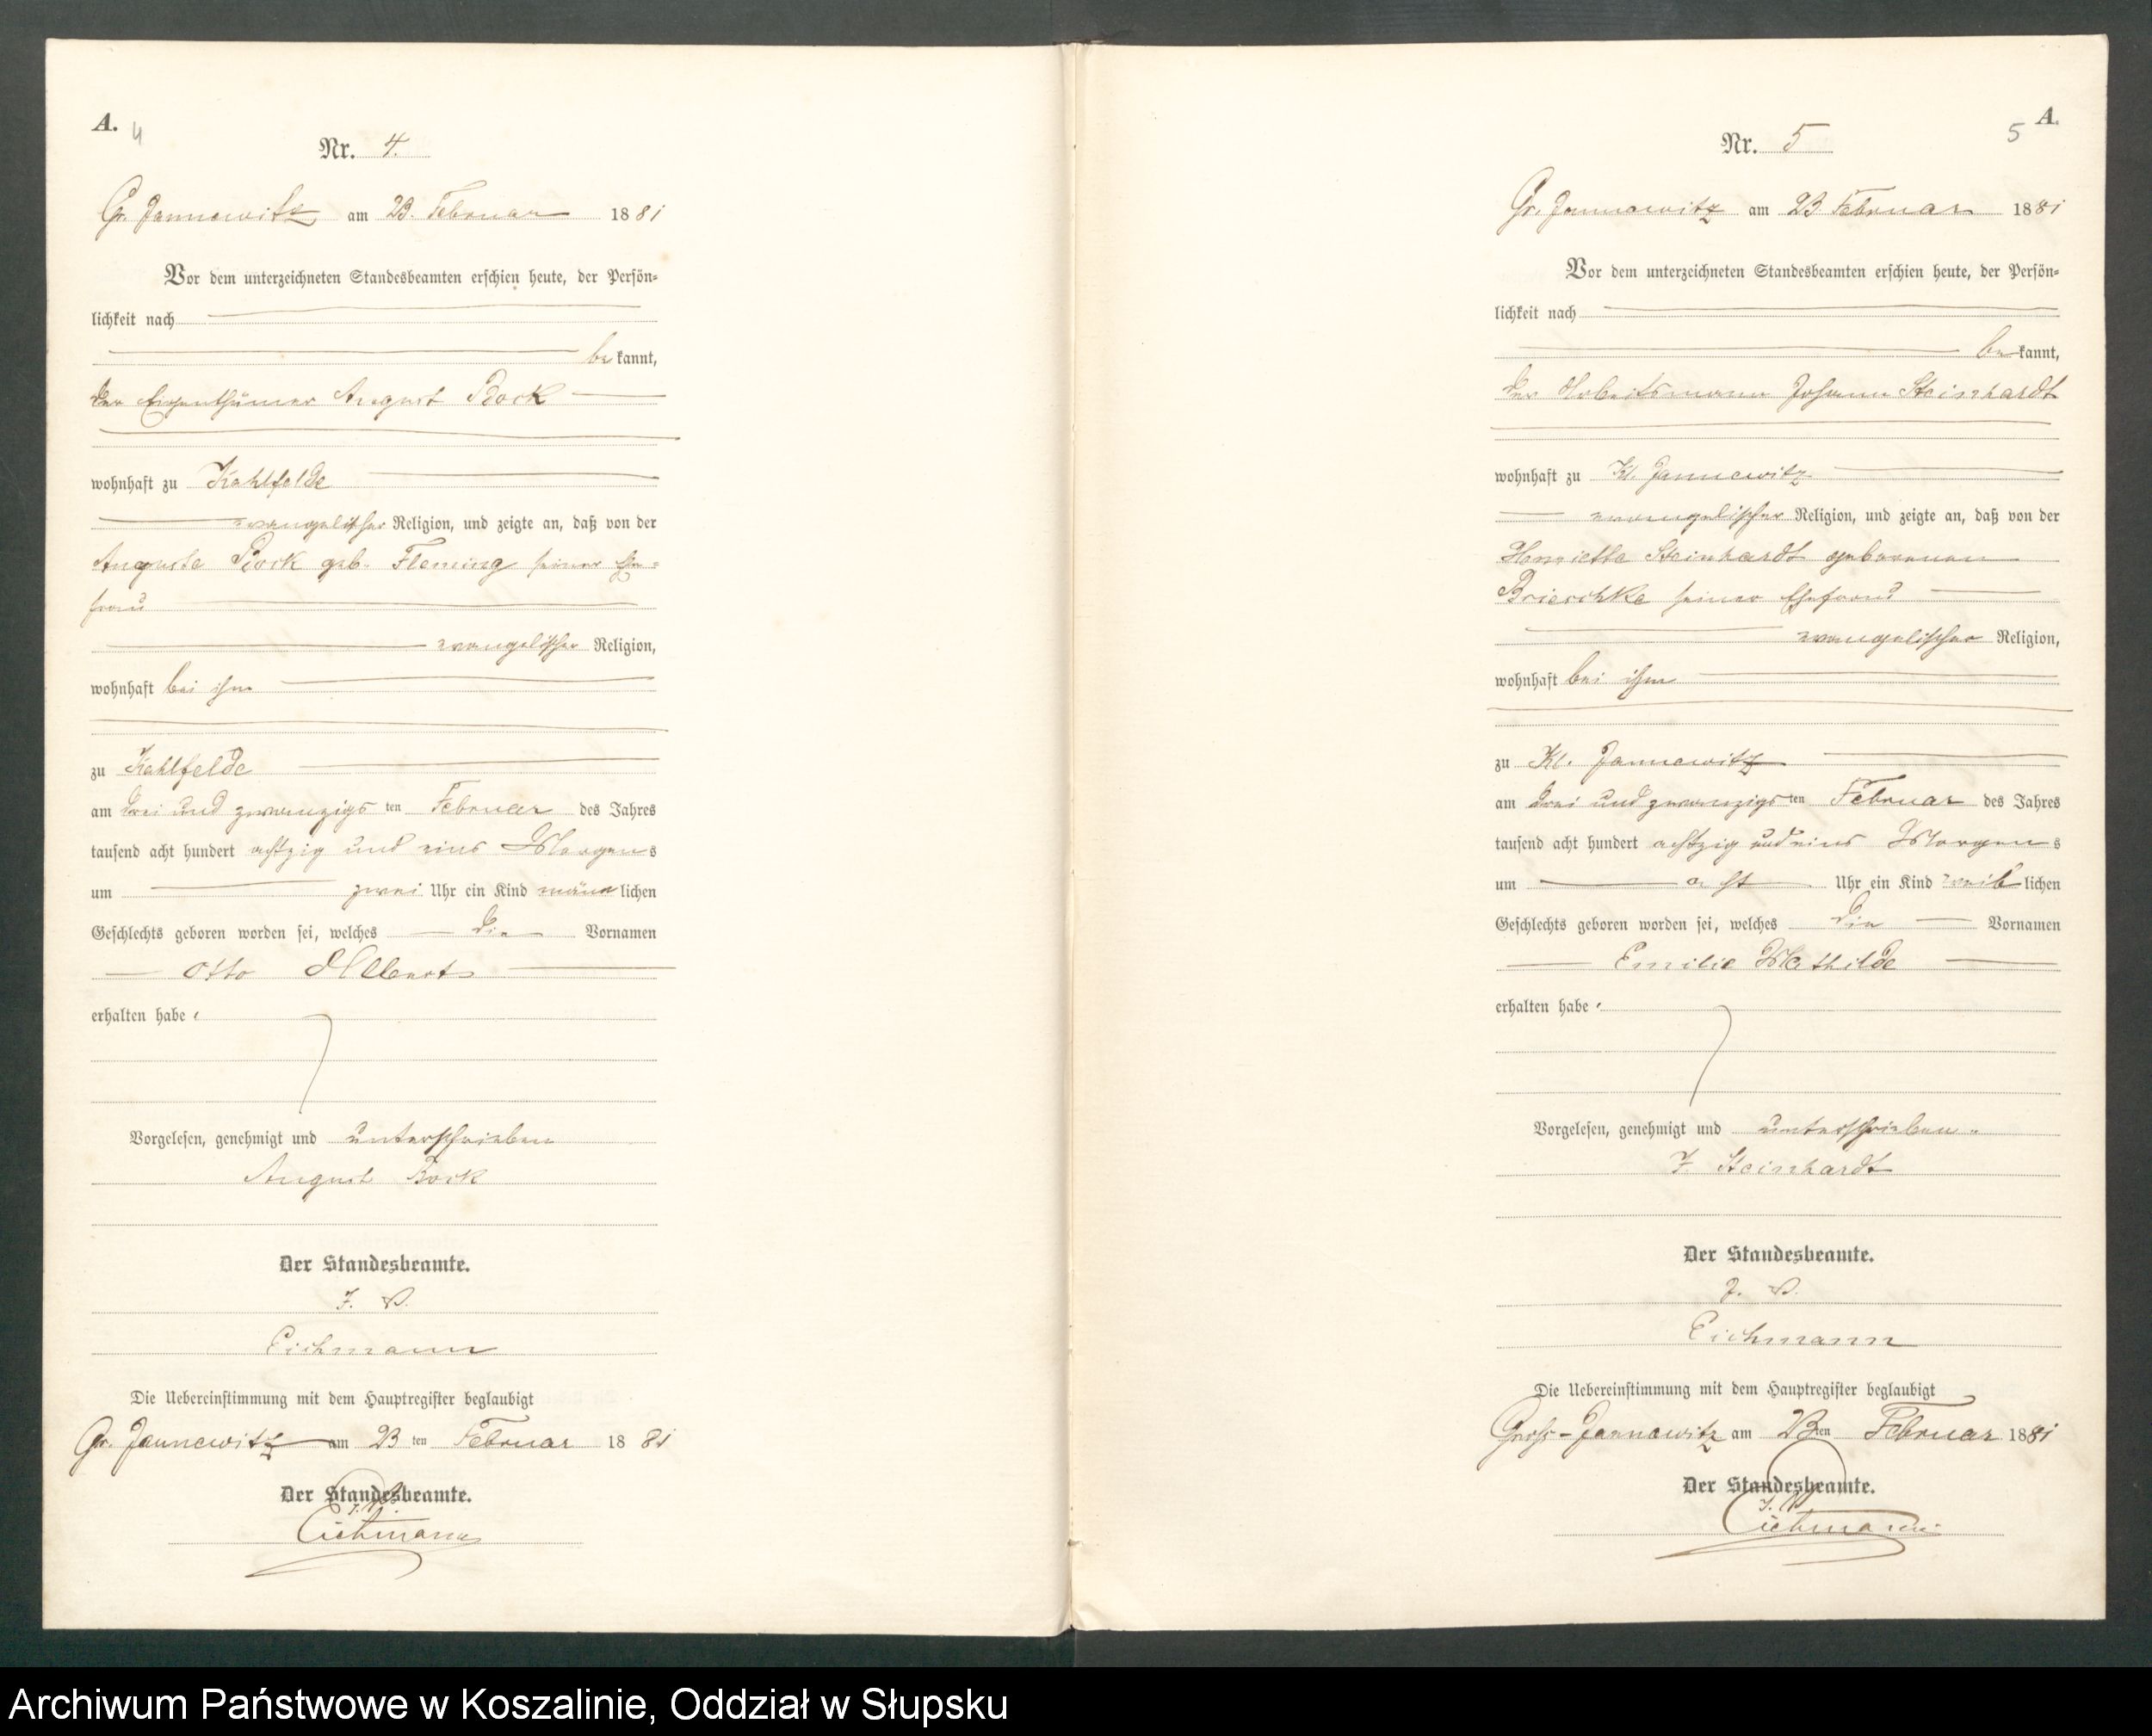 A. 4
Nr. 4.
Gr. Jannewitz am 23. Februar 1881
Vor dem unterzeichneten Standesbeamten erschien heute, der Persön-
lichkeit nach
bekannt,
der Eigenthümer August Bock
wohnhaft zu Kahlfelde
evangelischer Religion, und zeigte an, daß von der
Auguste Bock geb. Fleming seiner Ehe-
frau
evangelischer Religion,
wohnhaft bei ihm
zu Kahlfelde
am drei und zwanzigsten Februar des Jahres
tausend acht hundert achtzig und eins Morgens
um zwei Uhr ein Kind männlichen
Geschlechts geboren worden sei, welches die Vornamen
Otto Albert
erhalten habe.
Vorgelesen, genehmigt und unterschrieben
August Bock
Der Standesbeamte.
J. V.
Eichmann
Die Uebereinstimmung mit dem Hauptregister beglaubigt
Gr. Jannewitz am 23ten Februar 1881
Der Standesbeamte.
J. V.
Eichmann
5 A.
Nr. 5
Gr. Jannewitz am 23 Februar 1881
Vor dem unterzeichneten Standesbeamten erschien heute, der Persön-
lichkeit nach
bekannt,
der Arbeitsmann Johann Steinhardt
wohnhaft zu Kl. Jannewitz
evangelischer Religion, und zeigte an, daß von der
Henriette Steinhardt geborenen
Brieschke seiner Ehefrau
evangelischer Religion,
wohnhaft bei ihm
zu Kl. Jannewitz
am drei und zwanzigsten Februar des Jahres
tausend acht hundert achtzig und eins Morgens
um acht Uhr ein Kind weiblichen
Geschlechts geboren worden sei, welches die Vornamen
Emilie Mathilde
erhalten habe.
Vorgelesen, genehmigt und unterschrieben.
J. Steinhardt
Der Standesbeamte.
J. V.
Eichmann
Die Uebereinstimmung mit dem Hauptregister beglaubigt
Gross-Jannewitz am 23ten Februar 1881
Der Standesbeamte.
J. V.
Eichmann
Archiwum Państwowe w Koszalinie, Oddział w Słupsku